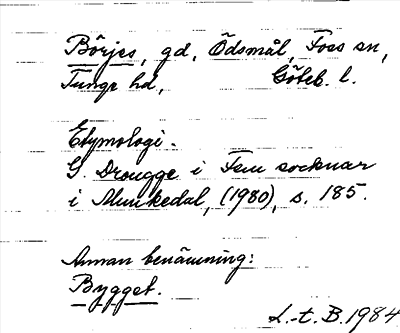 Börjes, gd, Ödsmål, Foss sn,
Tunge hd, Göteb. l.
Etymologi.
G. Drougge i Fem socknar
i Munkedal, (1980), s. 185.
Annan benämning:
Bygget.
L.-t. B. 1984